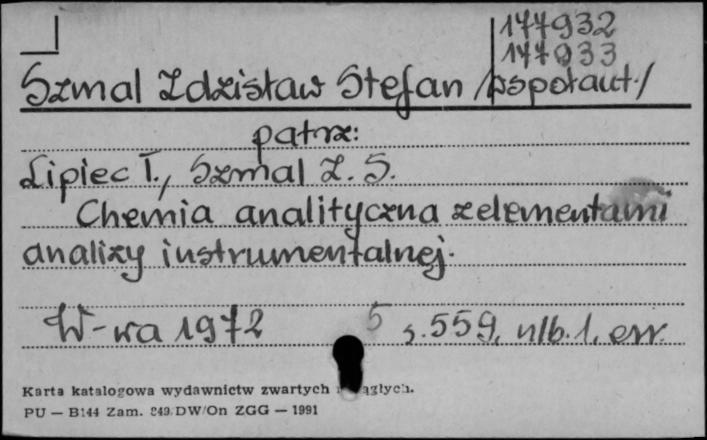 177932
177933
Szmal Zdzisław Stefan /współaut./
patrz:
Lipiec T., Szmal Z. S.
Chemia analityczna z elementami
analizy instrumentalnej.
W-wa 1972 5 s. 559, nlb. 1, err.
Karta katalogowa wydawnictw zwartych i ciągłych.
PU — B144 Zam. 849. DW/On ZGG — 1991